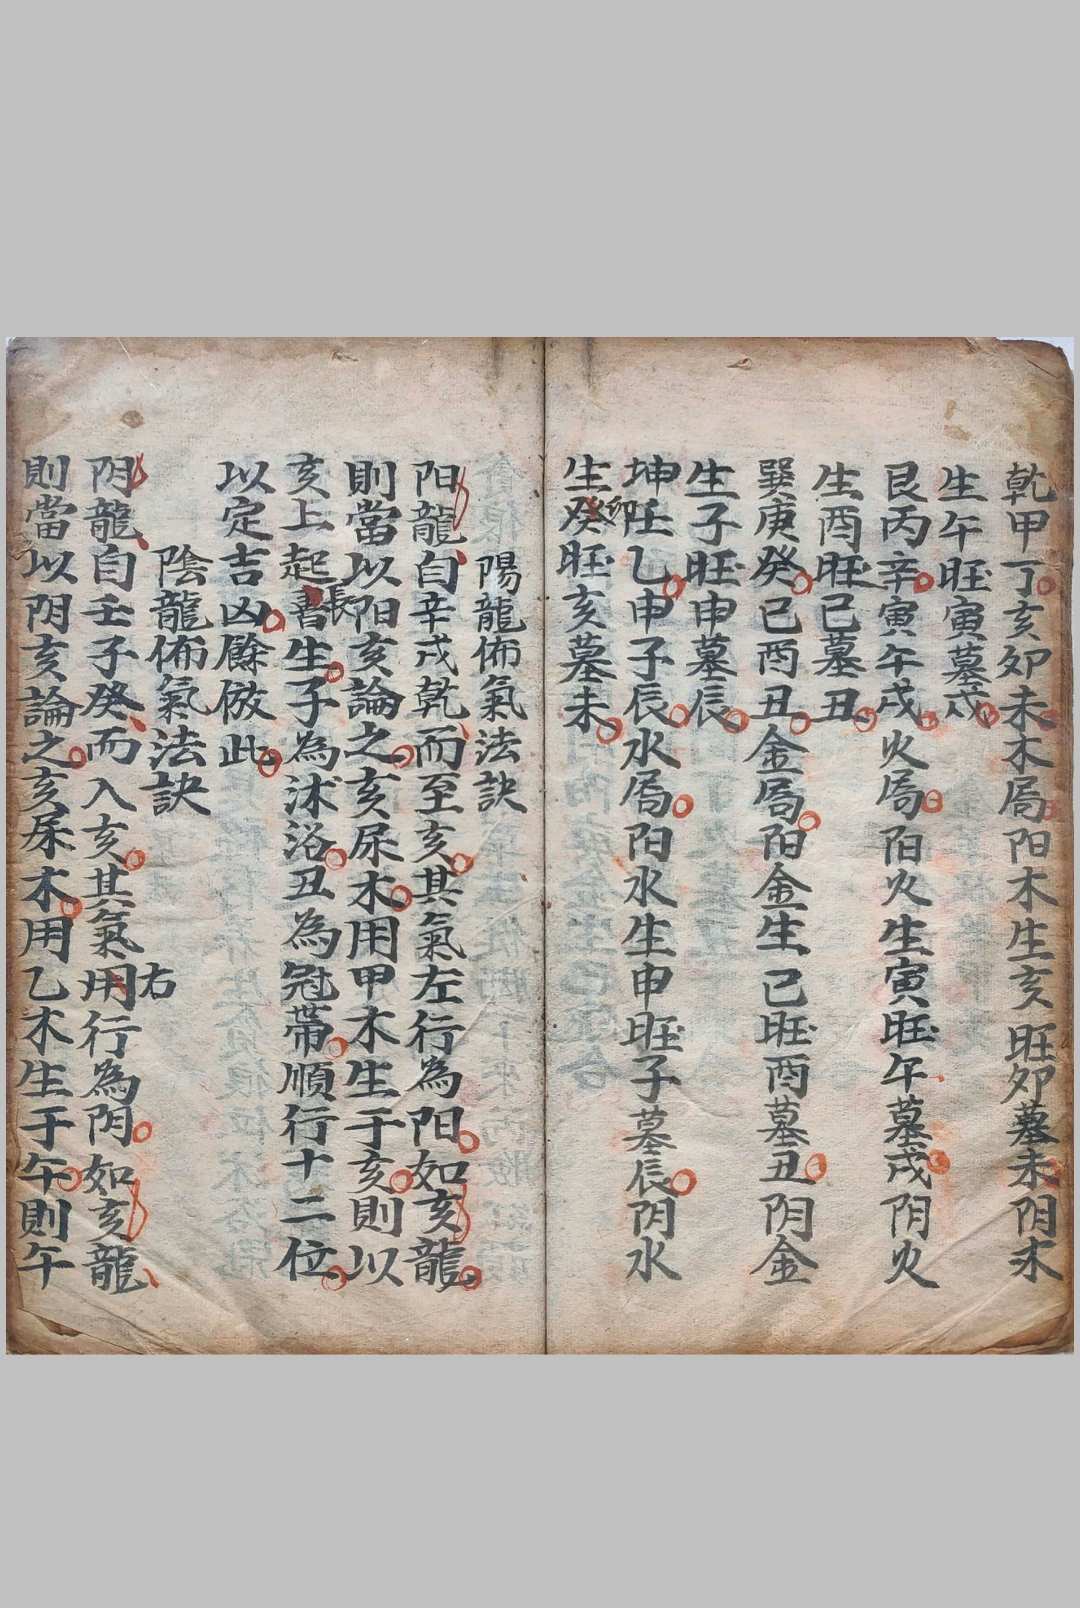 乾甲丁亥卯未木局阳木生亥旺卯墓未阴木
生午旺寅墓戌
艮丙辛寅午戌火局阳火生寅旺午墓戌阴火
生酉旺巳墓丑
巽庚癸巳酉丑金局阳金生巳旺酉墓丑阴金
生子旺申墓辰
坤壬乙申子辰水局阳水生申旺子墓辰阴水
生卯旺亥墓未
陽龍佈氣法訣
阳龍自辛戌乾而至亥其氣左行為阳如亥龍
則當以阳亥論之亥尿木用甲木生于亥則以
亥上起長生子為沭浴丑為冠帶順行十二位
以定吉凶餘倣此
陰龍佈氣法訣
阴龍自壬子癸而入亥其氣右行為阴如亥龍
則當以阴亥論之亥尿木用乙木生于午則午